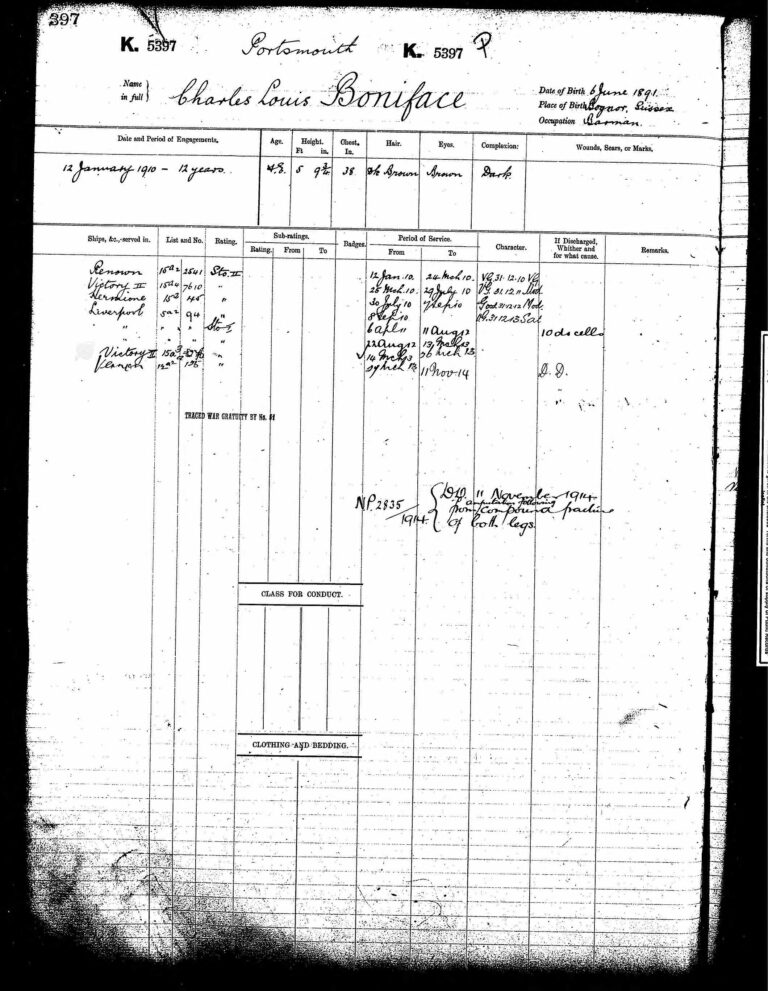 397
K. 5397 Portsmouth K. 5397 P
Name in full } Charles Louis Boniface
Date of Birth 6 June 1891.
Place of Birth Bognor, Sussex
Occupation Barman.
Date and Period of Engagements. Age. Height. Ft in. Chest. In. Hair. Eyes. Complexion: Wounds, Scars, or Marks,
12 January 1910 - 12 years. 18. 5 9 38 Dk Brown Brown Dark
Ships, &c., served in. List and No. Rating. Sub-ratings. Rating. From To Badges. Period of Service. From To Character. If Discharged, Whither and for what cause. Remarks.
Renown 15a2 2541 Sto. II 12 Jan. 10. 24 Mch 10. VG. 31.12.10 VG
Victory II 15a4 7610 " 25 Mch. 10. 29 July 10 VG. 31.12.11 Mod.
Hermione 15a 45 " 30 July 10 7 Sep 10 Good 31.12.12 Mod.
Liverpool 5a2 94 " 8 Sep 10 31.12.13 Sat
" " " Sto I. 6 Apl 11 11 Aug 12 10 ds cells
" 22 Aug 12 13 Mch 13
Victory II 15a " 14 Mch 13 28 Mch 13
Vernon 12a2 " 29 Mch 13 11 Nov 14 D.D.
TRACED WAR GRATUITY BY No.
N.P. 2835/1914 { D.D. 11 November 1914
amputation following
from compound fracture
of both legs.
CLASS FOR CONDUCT.
CLOTHING AND BEDDING.